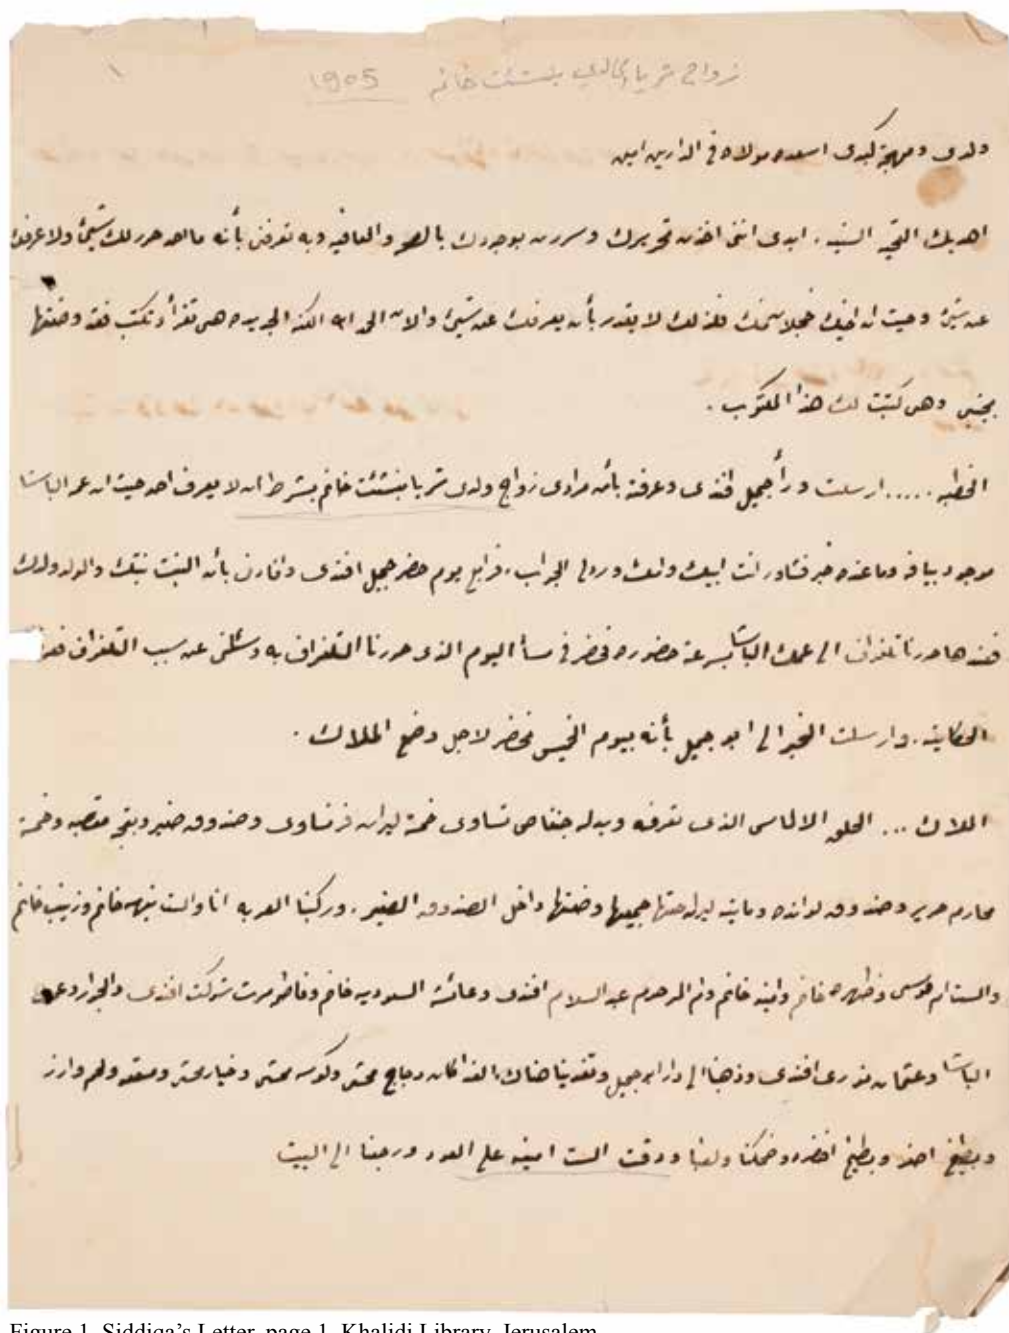 زواج ثريا الخالدي بنشئت خانم 1905
١
ولدي ومهجة كبدي اسعده مولاه في الدارين امين
اهديك التحية السنيه. ابدي انني اخذت تحريرك وسررت بوجودك بالصحه والعافيه وبه تعرفني بأنه ما احد حرر لك شيئ ولا عرفك
عن شيئ وحيث ان اخيك خجلا منك فلذلك لا يقدر بأن يعرفك عن شيئ والان الحمد لله الكنه الجديده هي تقرأ وتكتب فقد وضعتها
بجنبي وهي كتبت لك هذا المكتوب.
الخطبه ..... ارسلت ورأ جميل افندي وعرفته بأن مرادي زواج ولدي ثريا بنشئت خانم بشرط ان لا يعرف احد حيث ان عمر الباشا
موجود بيافه وما عنده خبر فشاور انت ابيك وامك وردلي الجواب. فرابع يوم حضر جميل افندي وافادني بأن البنت بنتك والولد ولدك
فعندها حررنا تلغراف الى عمك الباشا بسرعة حضوره فحضر في مسأ اليوم الذي حررنا التلغراف به وسئلني عن سبب التلغراف
الحكايه. وارسلت الخبر الى ابو جميل بأنه بيوم الخميس نحضر لاجل وضع الملاك.
الملاك ... الحلق الالماسي الذي تعرفه وبدله جنفاص تساوي خمسة ليرات فرنساوي وصندوق صغير وبقجه مقصبه وخمسة
محارم حرير وصندوق لوانده وماية ليره جميعها وضعتها داخل الصندوق الصغير. وركبنا العربه انا والست نبيهه خانم وزينب خانم
والست ام موسى وظهره خانم وامينه خانم وام المرحوم عبد السلام افندي وعائشه السعوديه خانم وفاطمه مرت شوكت افندي والجوار وعمك
الباشا وعثمان نوري افندي وذهبنا الى دار ابو جميل وتغدينا هناك. الغدا كان دجاج محشي وكوسه محشي وخيار محشي ومعقد ولحم وارز
وبطيخ احمر وبطيخ اخضر وضحكنا ولعبنا ودقت الست امينه على العود ورجعنا الى البيت
Figure 1. Siddiqa's Letter, page 1. Khalidi Library, Jerusalem.